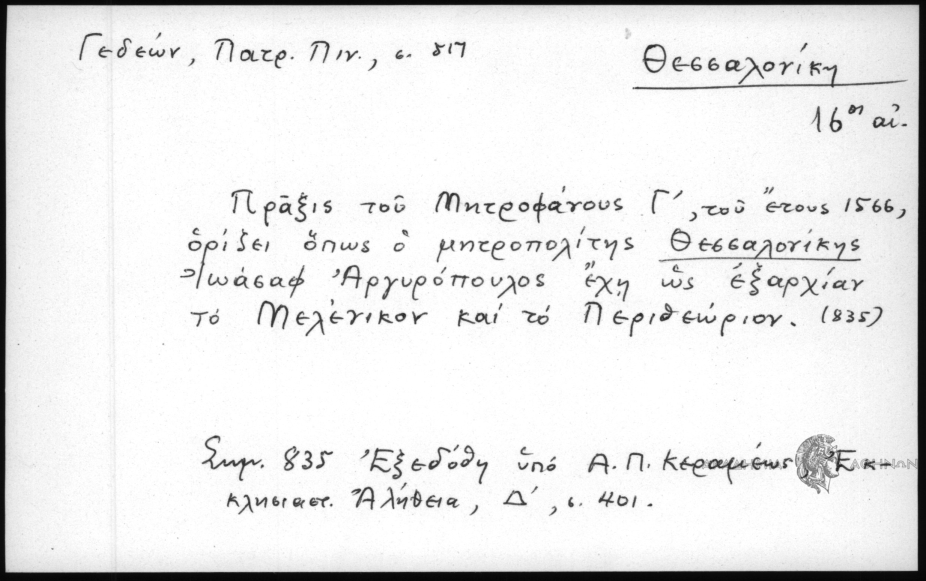 Γεδεών, Πατρ. Πιν., σ. 517
Θεσσαλονίκη
16ος αἰ.
Πρᾶξις τοῦ Μητροφάνους Γ΄, τοῦ ἔτους 1566,
ὁρίζει ὅπως ὁ μητροπολίτης Θεσσαλονίκης
Ἰωάσαφ Ἀργυρόπουλος ἔχῃ ὡς ἐξαρχίαν
τό Μελένικον καί τό Περιθεώριον. (835)
Σημ. 835 Ἐξεδόθη ὑπό Α. Π. Κεραμέως, Ἐκ-
κλησιαστ. Ἀλήθεια, Δ΄, σ. 401.